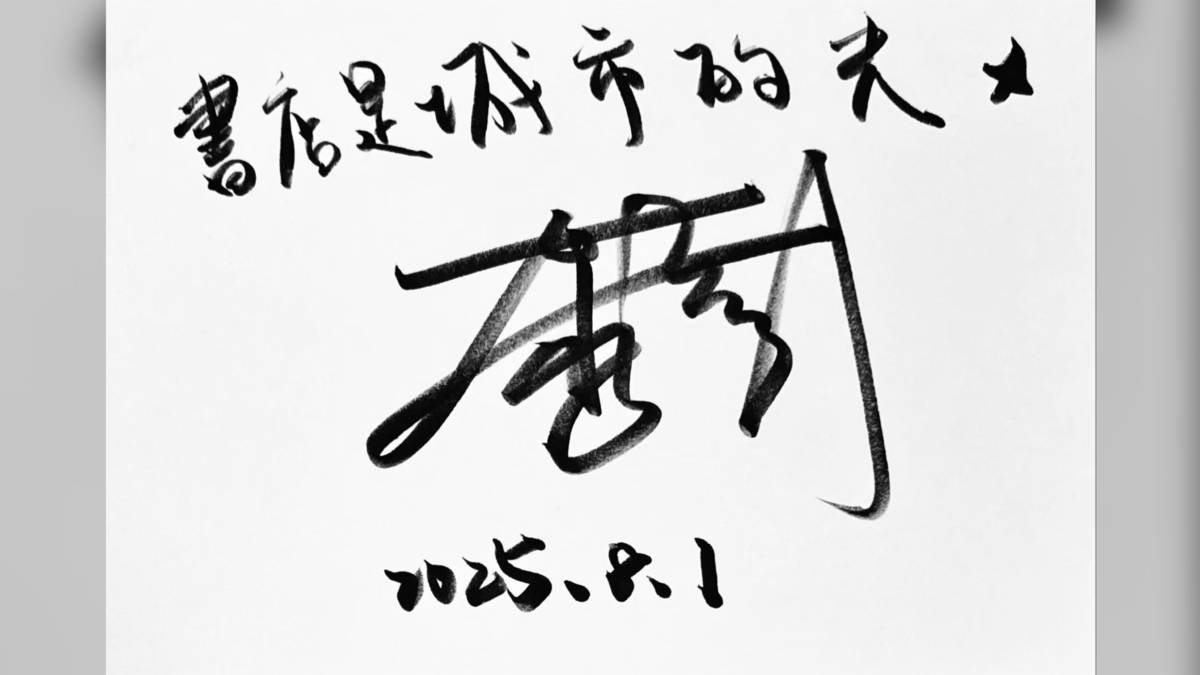 書店是城市的光
2025.8.1